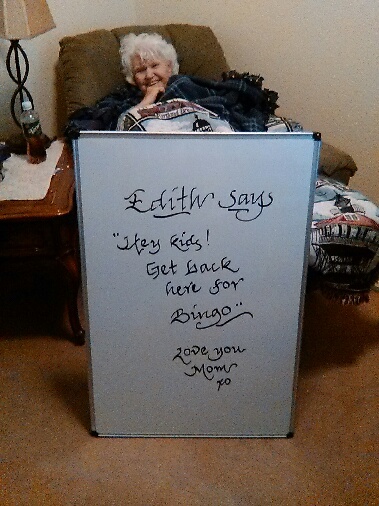 Edith says
"Hey kids!
Get back
here for
Bingo"
Love you
Mom
xo